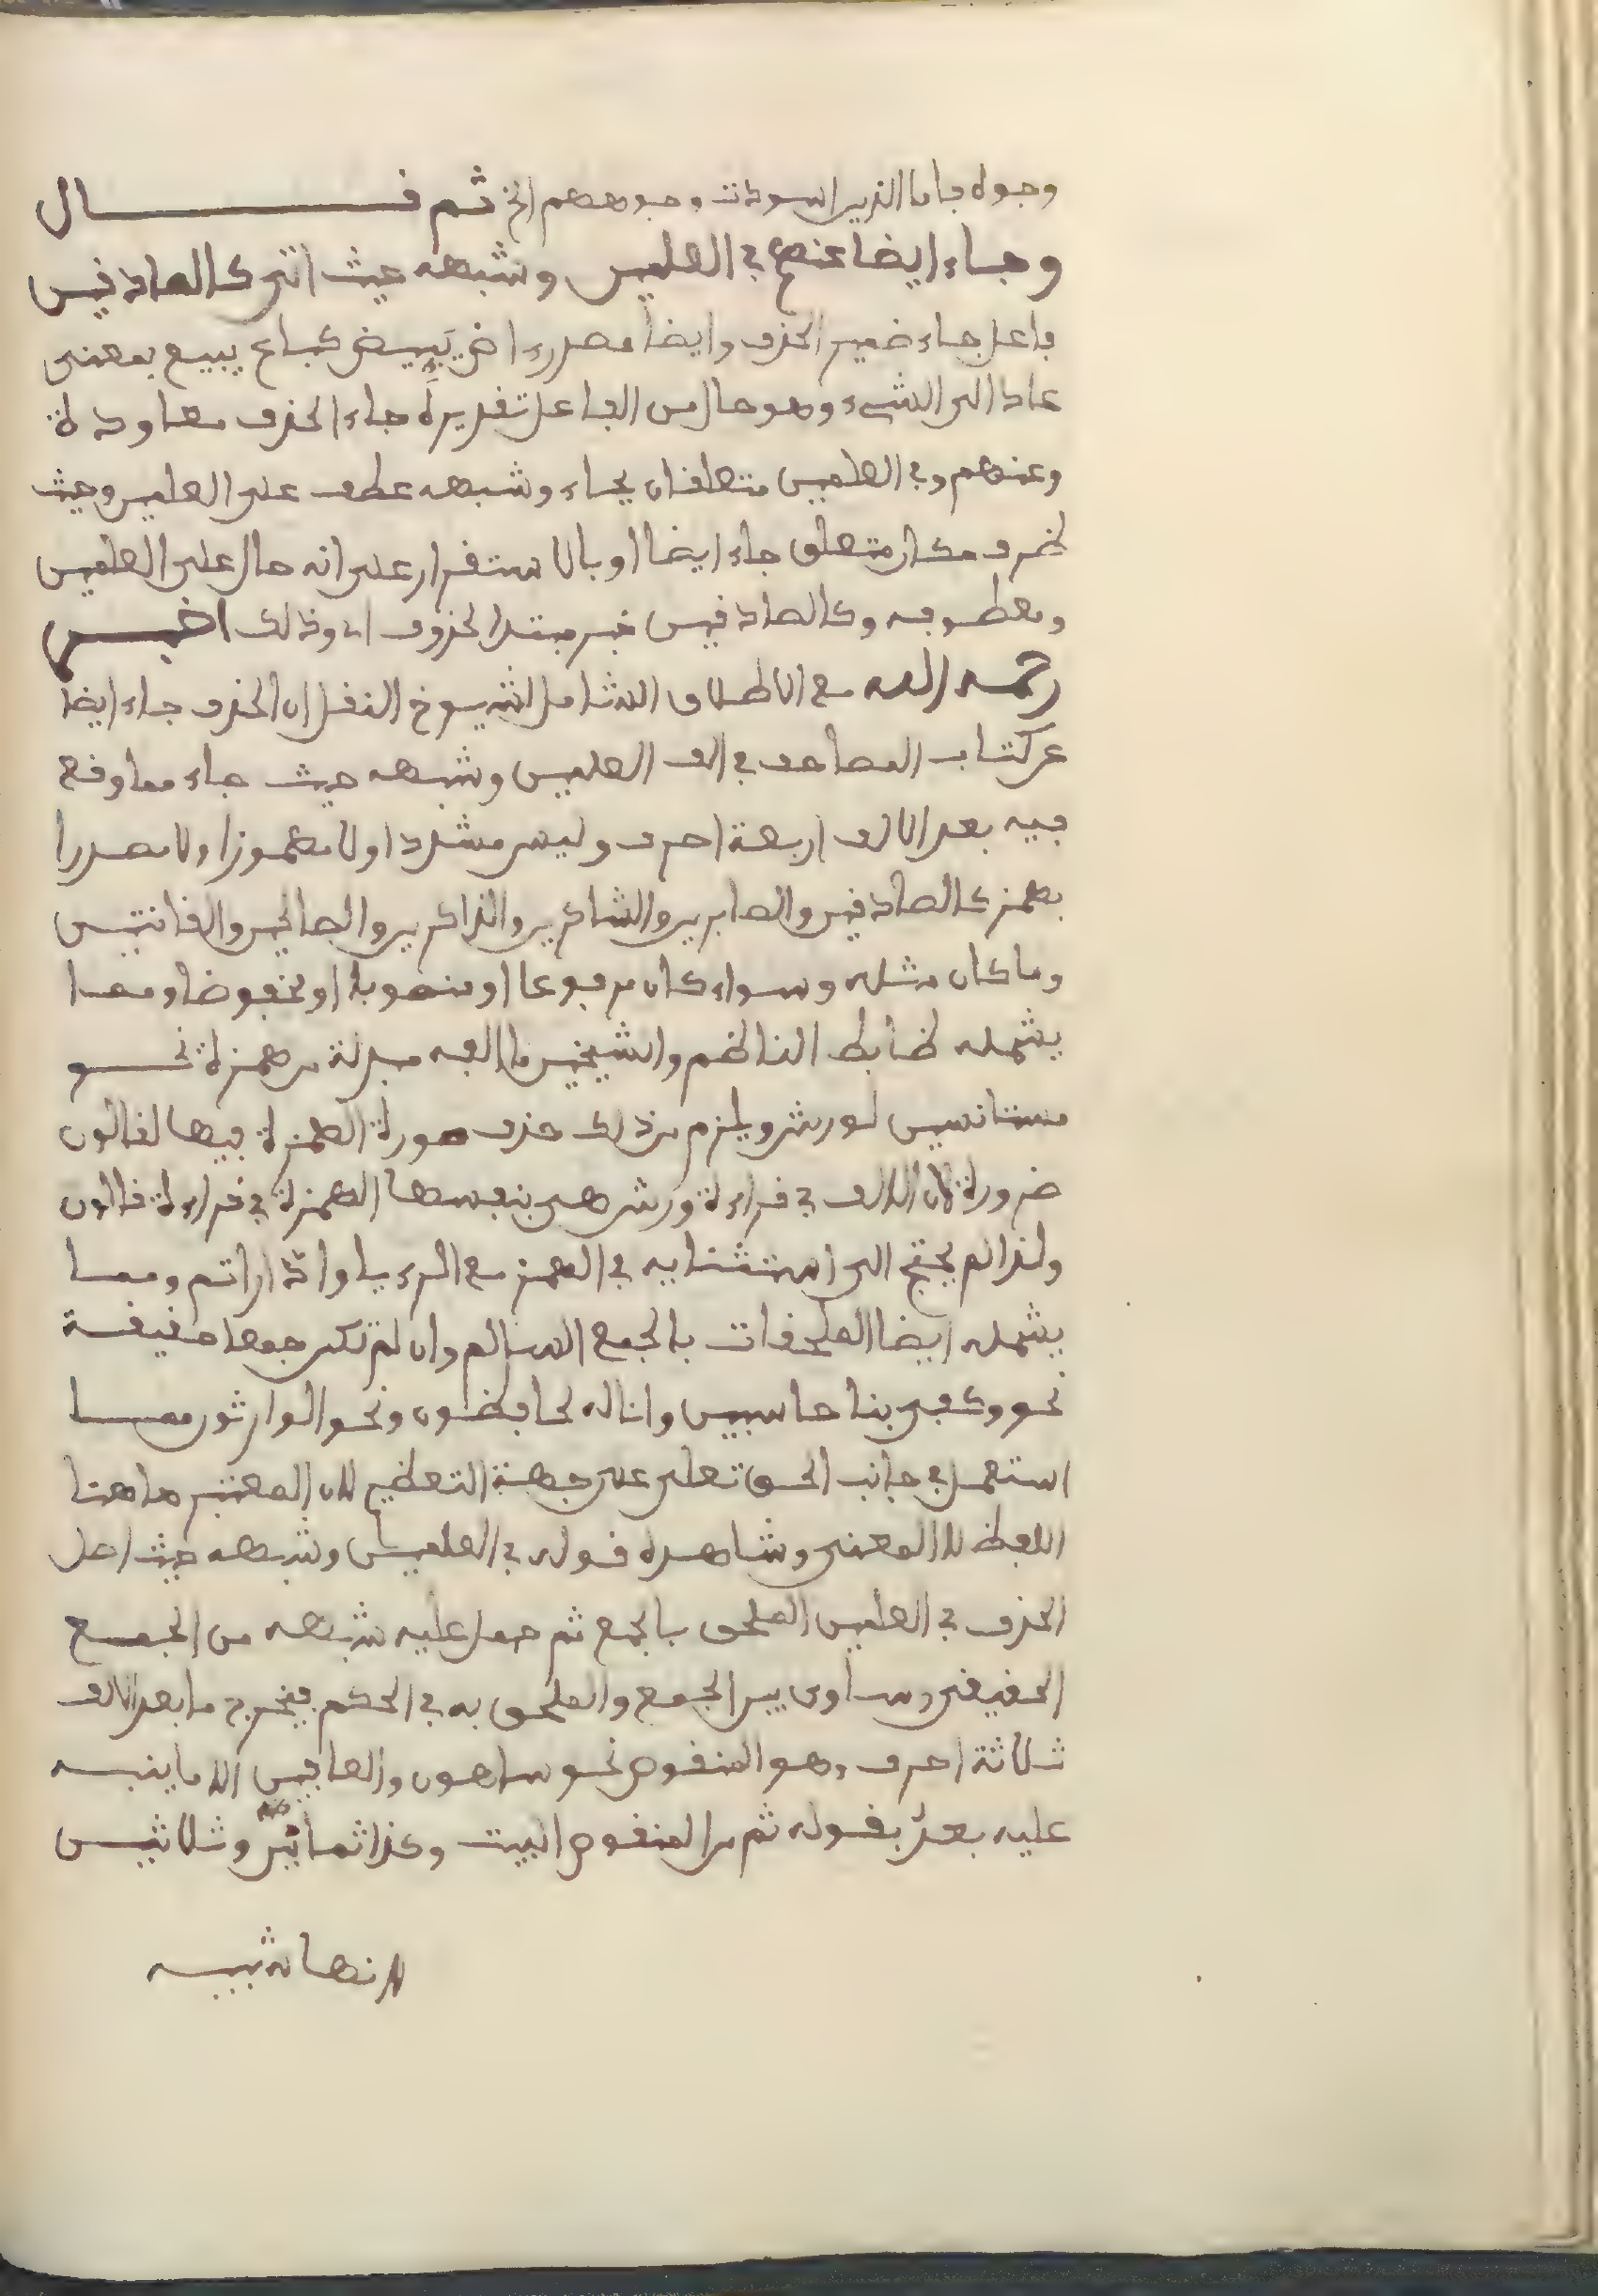 وجوه فاما الذين اسودت وجوههم الخ ثم قال
وجاء ايضا عنهم في العلمين وشبهه حيث اتى كالصادقين
فاعل جاء ضمير الحذف وايضا مصدر اض يئيض كباع يبيع بمعنى
عاد الى الشيء وهو حال من الفاعل تقديره جاء الحذف معاودة
وعنهم وفي العلمين متعلقان بجاء وشبهه عطف على العلمين وحيث
ظرف مكان متعلق جاء ايضا او بالاستقرار على انه حال على العلمين
ومعطوفه وكالصادقين خبر مبتدا محذوف اي وذلك اخبر
رحمه الله مع الاطلاق الشامل لشيوخ النقل ان الحذف جاء ايضا
عن كتاب المصاحف في الف العلمين وشبهه حيث جاء مما وقع
فيه بعد الالف اربعة احرف وليس مشددا ولا مهموزا ولا مصدرا
بهمز كالصادقين والصابرين والشاكرين والذاكرين والصالحين والقانتين
وما كان مثله وسواء كان مرفوعا او منصوبا او مخفوضا ومما
يشمله ضابط الناظم والشيخين ما الفه مبدلة من همزة نحو
مستانسين لورش ويلزم من ذلك حذف صورة الهمزة فيها لقالون
ضرورة لان الالف في قراءة ورش هي بنفسها الهمزة في قراءة قالون
ولذا لم يحتج الى استثنايه في الهمز مع الرءيا وادارأتم ومما
يشمله ايضا الملحقات بالجمع السالم وان لم تكن جمعا حقيقة
نحو وكفى بنا حاسبين وانا له لحافظون ونحو الوارثون مما
استعمل في جانب الحق تعلى على جهة التعظيم لان المعتبر هاهنا
اللفظ لا المعنى وشاهده قوله في العلمين وشبهه حيث احل
الحذف في العلمين الملحق بالجمع ثم حمل عليه شبهه من الجمع
الحقيقي وساوى بين الجمع والملحق به في الحكم فيخرج ما بعد الالف
ثلاثة احرف وهو المنقوص نحو ساهون والعافين الا ما ينبه
عليه بعد بقوله ثم من المنقوص البيت وكذا ثمانين وثلاثين
لانها شبيه